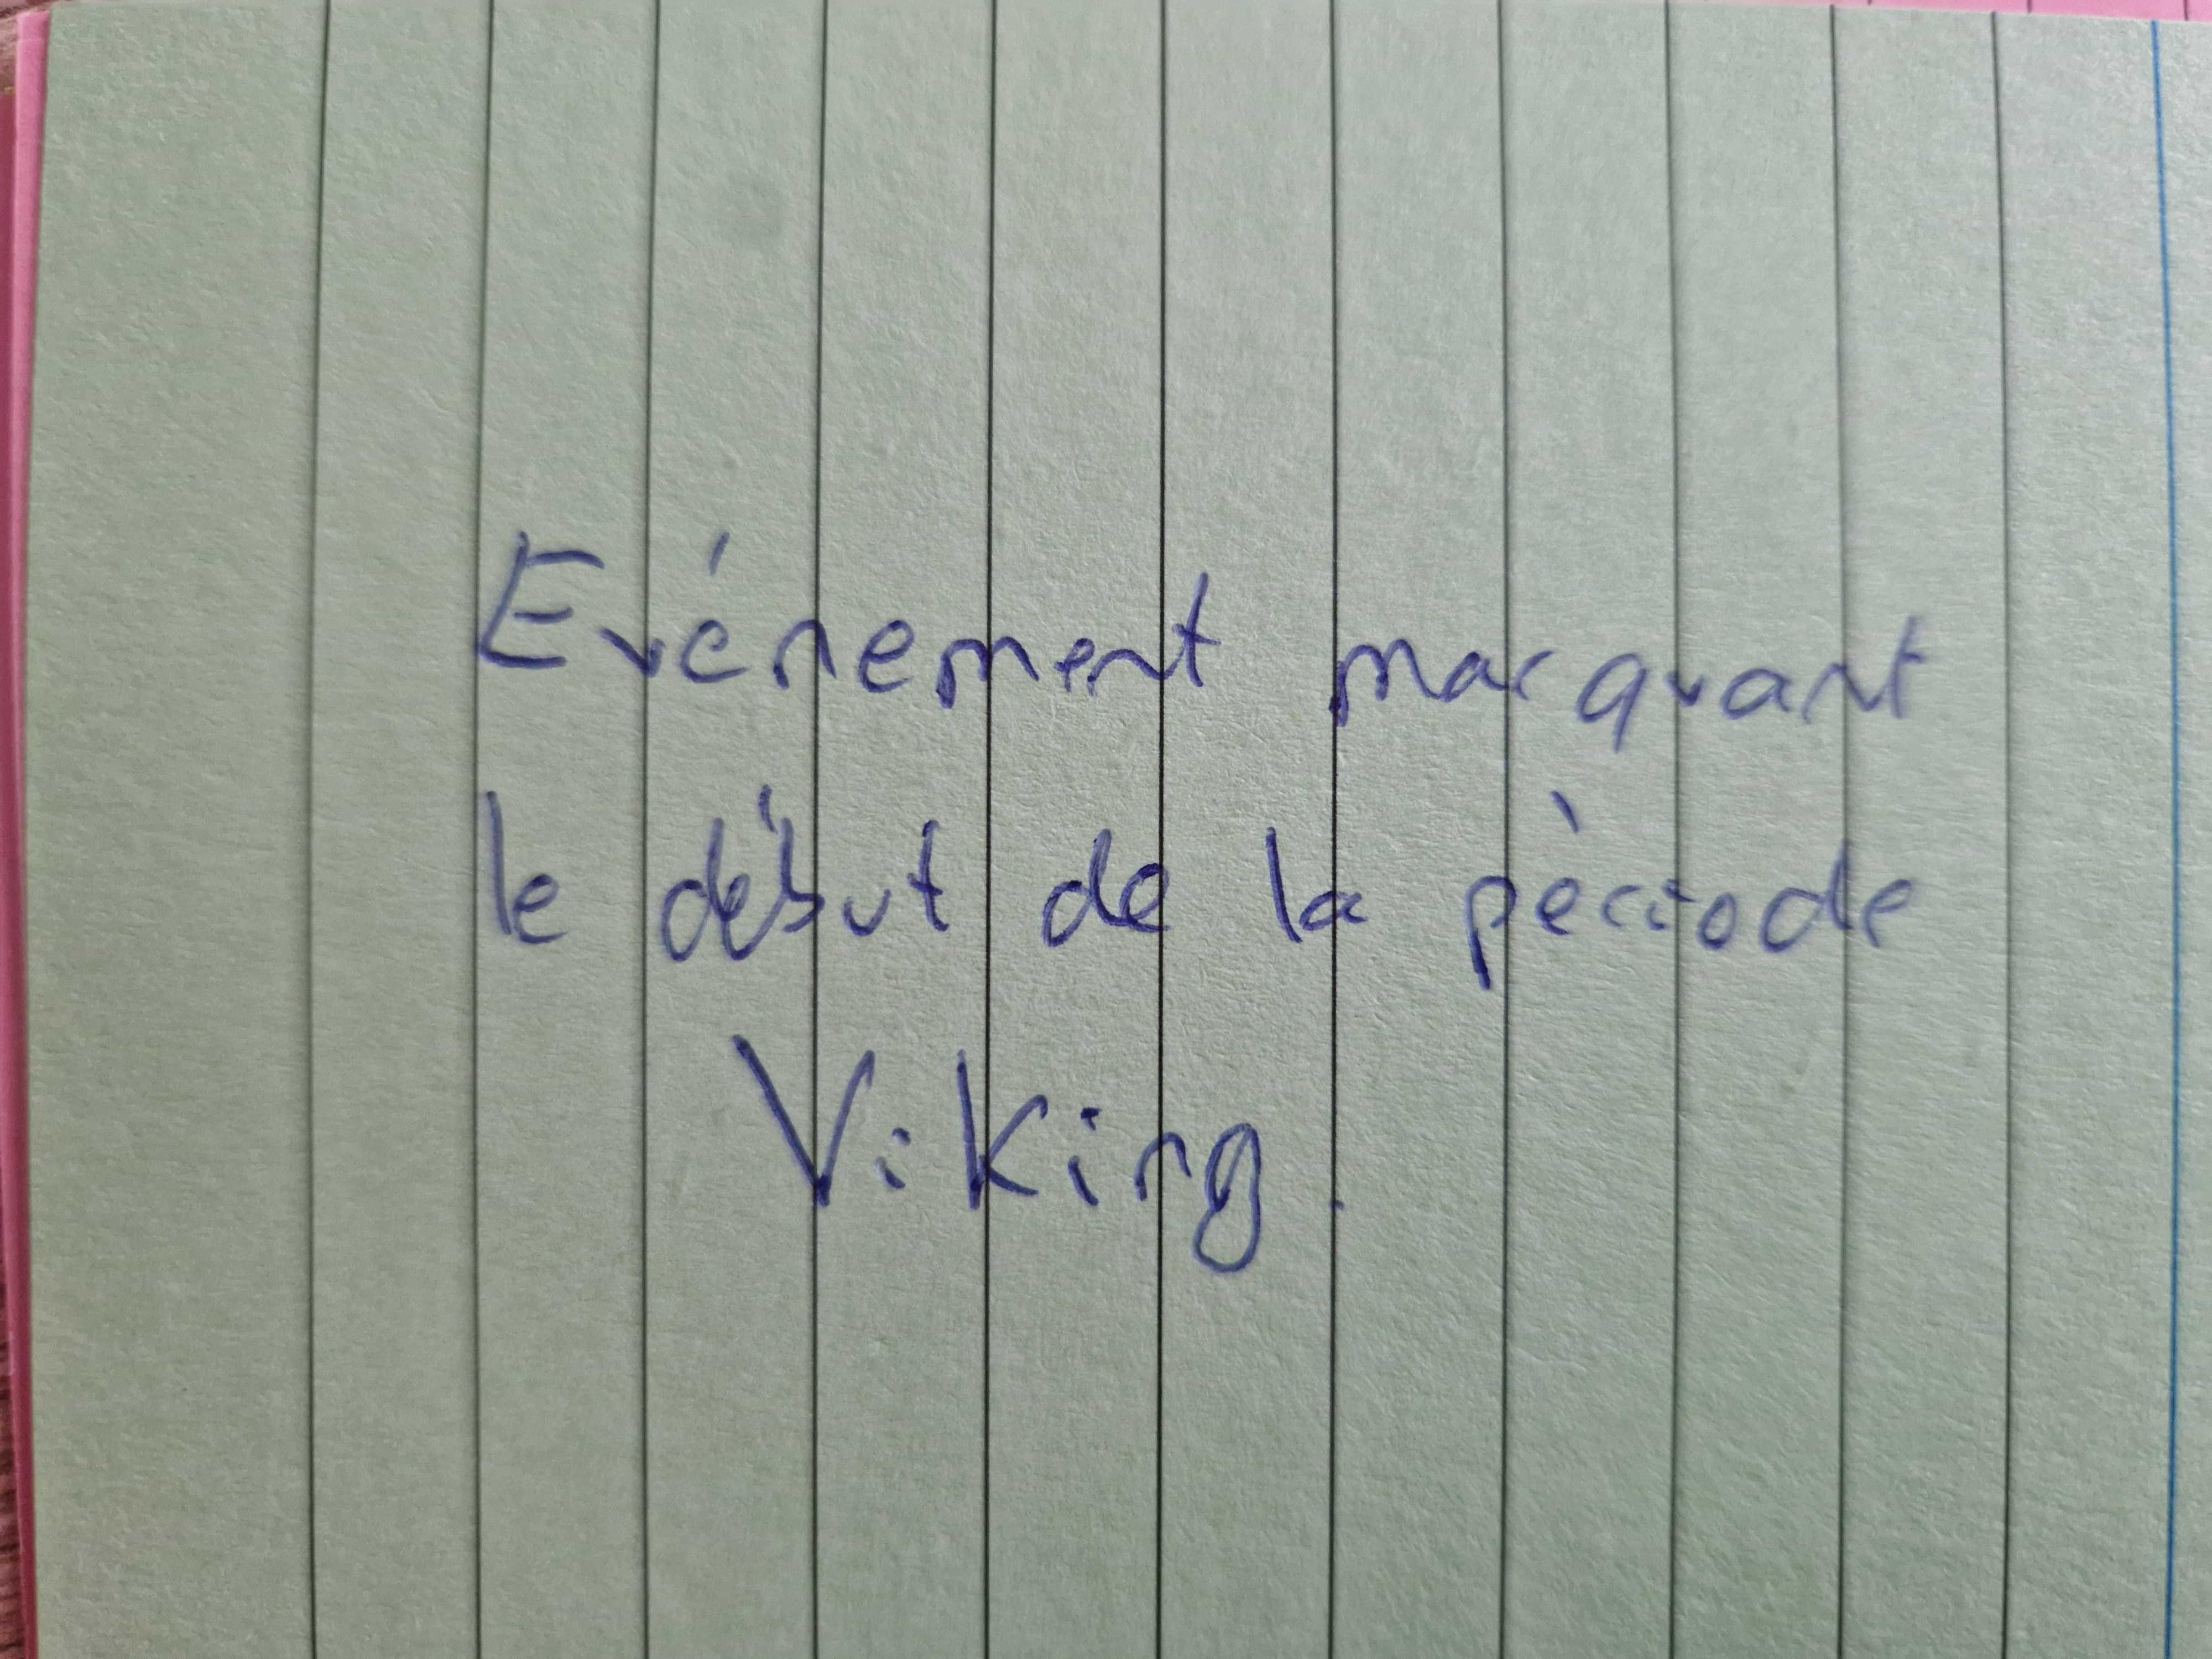 Evénement marquant
le début de la pèriode
Viking.